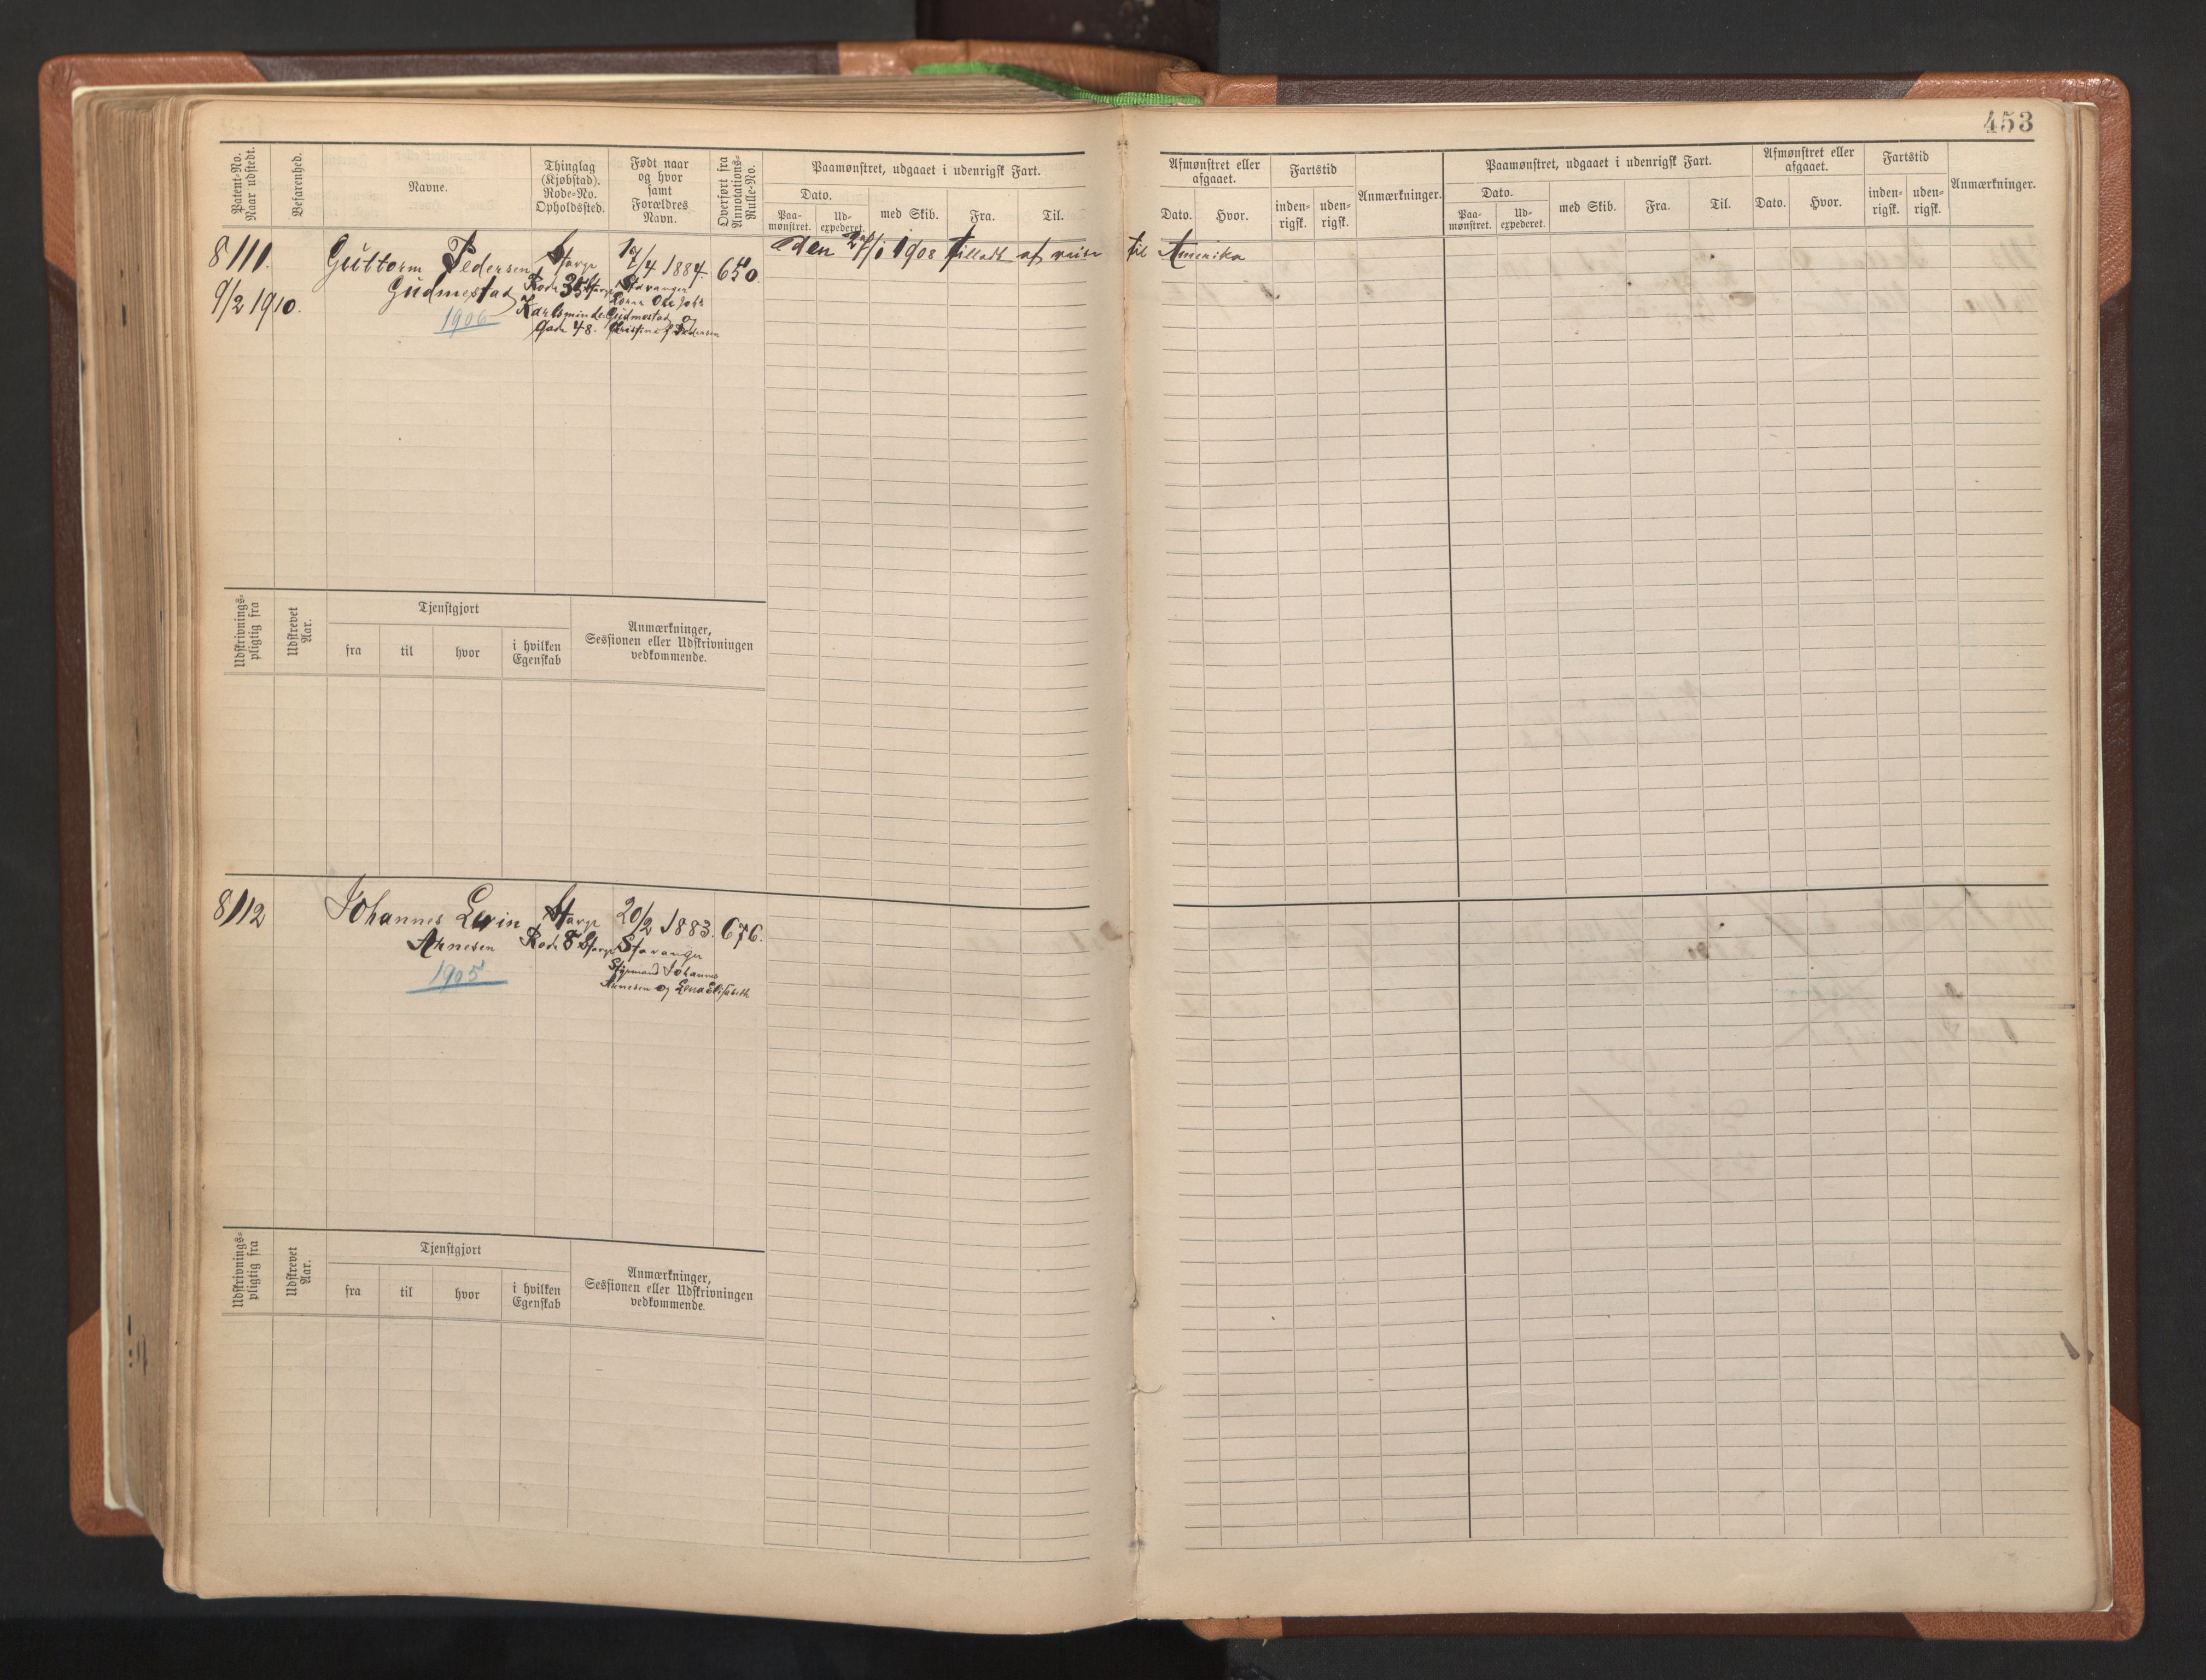 453
Patent-No.
Naar udstedt.
Befarenhed.
Navne.
Thinglag
(Kjøbstad).
Rode-No.
Opholdssted.
Født naar
og hvor
samt
Forældres
Navn.
Overført fra
Annotations-
Rulle-No.
Paamønstret, udgaaet i udenrigsk Fart.
Dato.
Paa-
mønstret.
Ud-
expederet.
med Skib.
Fra.
Til.
Afmønstret eller
afgaaet.
Dato.
Hvor.
Fartstid
inden-
rigsk.
uden-
rigsk.
Anmærkninger.
Paamønstret, udgaaet i udenrigsk Fart.
Dato.
Paa-
mønstret.
Ud-
expederet.
med Skib.
Fra.
Til.
Afmønstret eller
afgaaet.
Dato.
Hvor.
Fartstid
inden-
rigsk.
uden-
rigsk.
Anmærkninger.
8111.
9/2 1910.
Guttorm Pedersen
Gudmestad
1906
Stavgr
Rode 35 Stavgr
Karlsminde
Gade 48.
/4 1884.
Stavanger
Ole Johs
Gudmestad og
Christine f Pedersen
650.
den 1908 tilladt at reise til Amerika
Udskrivnings-
pligtig fra
Udskrevet
Aar.
Tjenstgjort
fra
til
hvor
i hvilken
Egenskab
Anmærkninger,
Sessionen eller Udskrivningen
vedkommende.
8112
Johannes Levin
Arnesen
1905
Stavgr
Rode 8 Stavgr
20/2 1883.
Stavanger
Styrmand Johannes
Arnesen og Lena Elisabeth
676.
Udskrivnings-
pligtig fra
Udskrevet
Aar.
Tjenstgjort
fra
til
hvor
i hvilken
Egenskab
Anmærkninger,
Sessionen eller Udskrivningen
vedkommende.